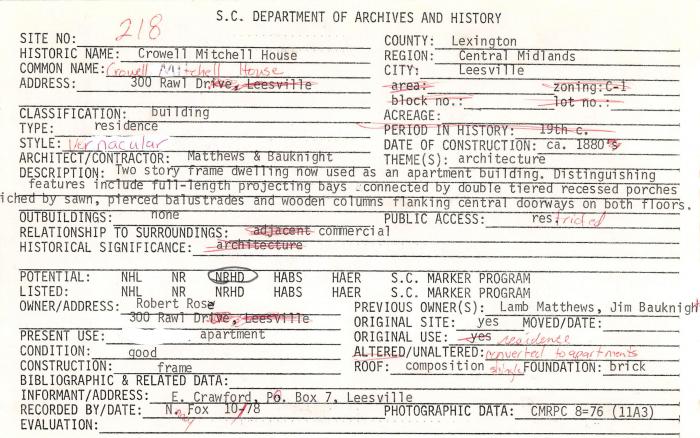 S.C. DEPARTMENT OF ARCHIVES AND HISTORY
SITE NO: 218
COUNTY: Lexington
HISTORIC NAME: Crowell Mitchell House
REGION: Central Midlands
COMMON NAME: Crowell Mitchell House
CITY: Leesville
ADDRESS: 300 Rawl Drive, Leesville
area: zoning: C-1
block no.: lot no.:
CLASSIFICATION: building
ACREAGE:
TYPE: residence
PERIOD IN HISTORY: 19th c.
STYLE: Vernacular
DATE OF CONSTRUCTION: ca. 1880's
ARCHITECT/CONTRACTOR: Matthews & Bauknight
THEME(S): architecture
DESCRIPTION: Two story frame dwelling now used as an apartment building. Distinguishing
features include full-length projecting bays connected by double tiered recessed porches
iched by sawn, pierced balustrades and wooden columns flanking central doorways on both floors.
OUTBUILDINGS: none
PUBLIC ACCESS: restricted
RELATIONSHIP TO SURROUNDINGS: adjacent commercial
HISTORICAL SIGNIFICANCE: architecture
POTENTIAL: NHL NR NRHD HABS HAER S.C. MARKER PROGRAM
LISTED: NHL NR NRHD HABS HAER S.C. MARKER PROGRAM
OWNER/ADDRESS: Robert Rose
300 Rawl Drive, Leesville
PREVIOUS OWNER(S): Lamb Matthews, Jim Bauknight
ORIGINAL SITE: yes MOVED/DATE:
PRESENT USE: apartment
ORIGINAL USE: yes residence
CONDITION: good
ALTERED/UNALTERED: converted to apartments
CONSTRUCTION: frame
ROOF: composition shingle FOUNDATION: brick
BIBLIOGRAPHIC & RELATED DATA:
INFORMANT/ADDRESS: E. Crawford, P.O. Box 7, Leesville
RECORDED BY/DATE: Nancy Fox 10/78
PHOTOGRAPHIC DATA: CMRPC 8=76 (11A3)
EVALUATION: